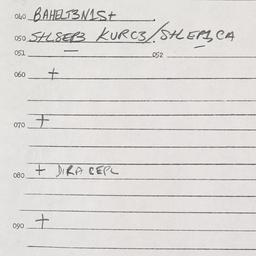 040 BAHELT3N1S+
050 S+L8EP3 KURC3/S+LEP3CA
051 052
060 +
070 +
080 + DIRA CEPL
090 +